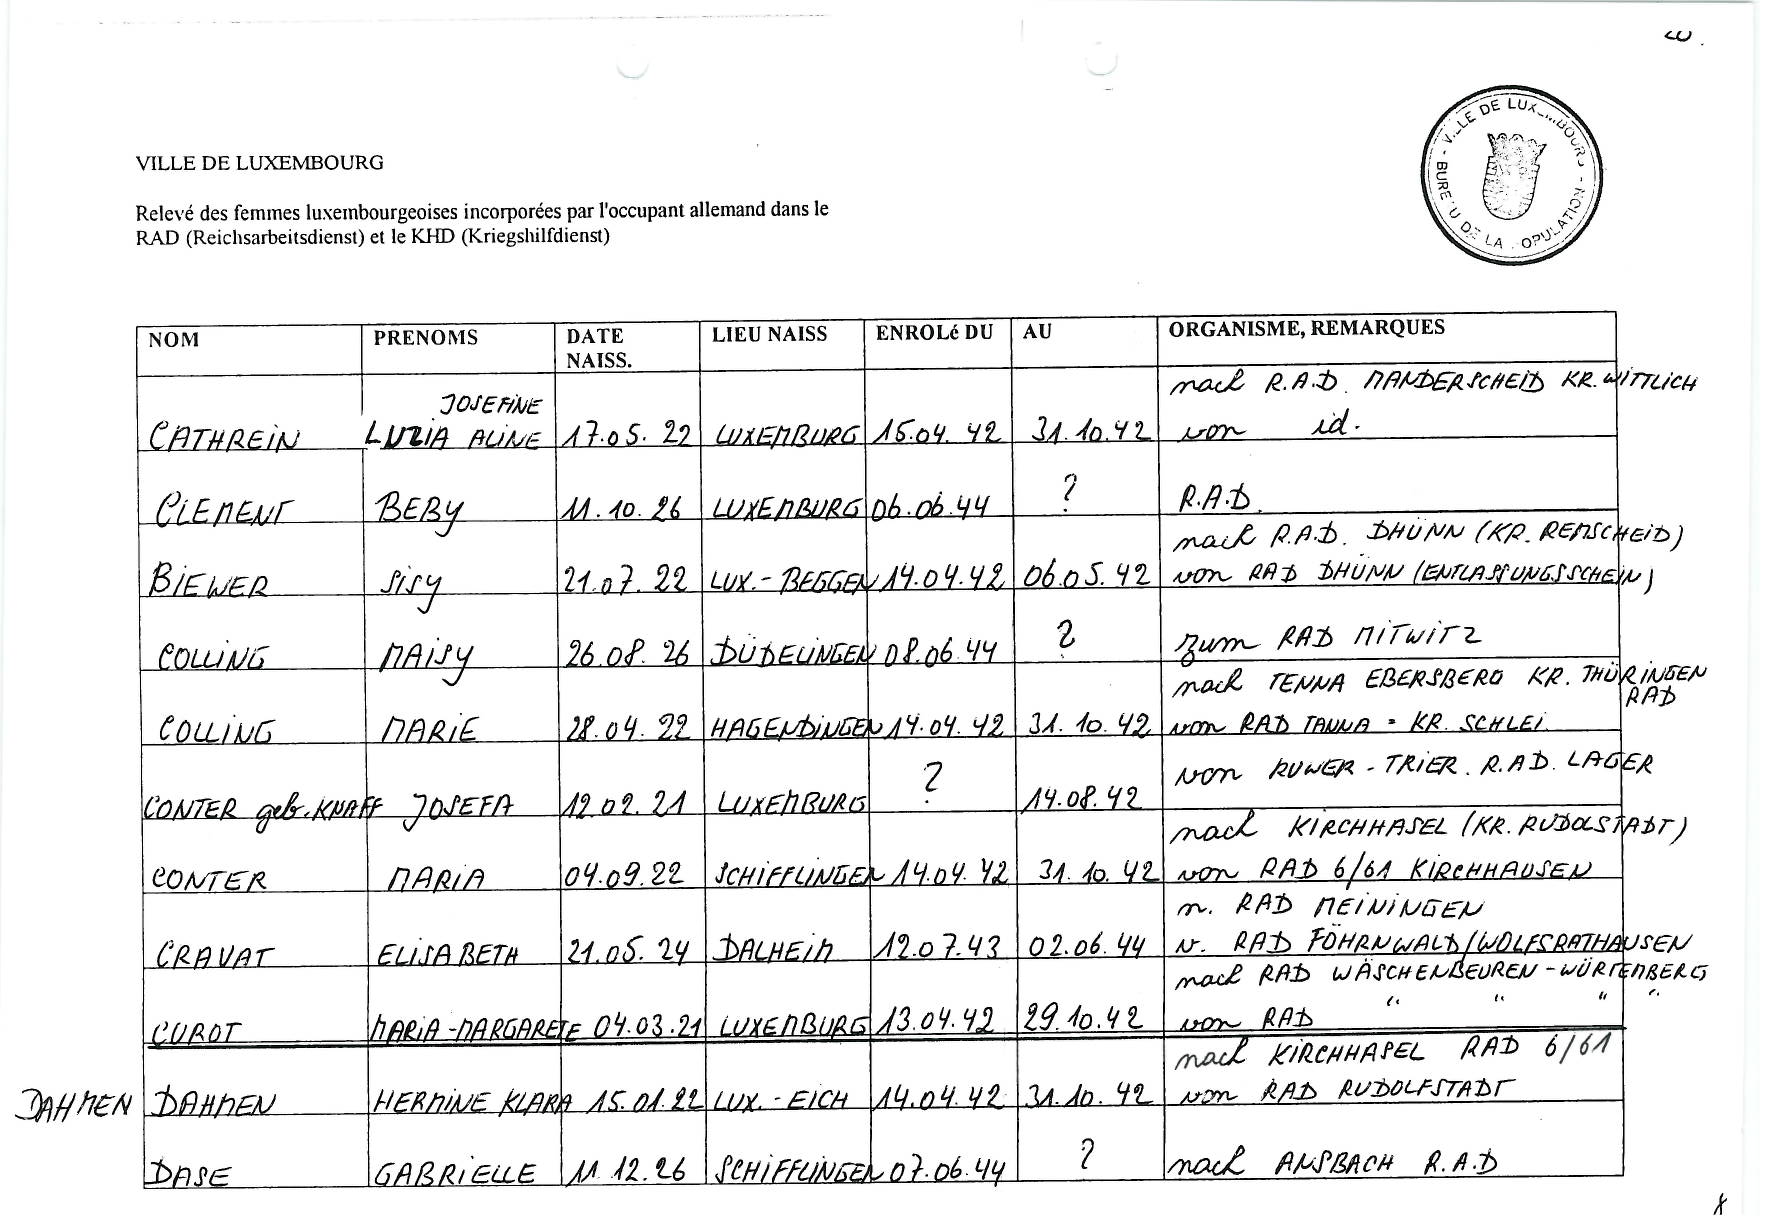 3.
VILLE DE LUXEMBOURG - BUREAU DE LA POPULATION -
VILLE DE LUXEMBOURG
Relevé des femmes luxembourgeoises incorporées par l'occupant allemand dans le
RAD (Reichsarbeitsdienst) et le KHD (Kriegshilfdienst)
NOM PRENOMS DATE NAISS. LIEU NAISS ENROLé DU AU ORGANISME, REMARQUES
nach R.A.D. MANDERSCHEID KR. WITTLICH
JOSEFINE
CATHREIN LUZIA ALINE 17.05.22 LUXEMBURG 15.04.42 31.10.42 von id.
CLEMENT BEBY 11.10.26 LUXEMBURG 06.06.44 ? R.A.D.
nach R.A.D. DHÜNN (KR. REMSCHEID)
BIEWER SISY 21.07.22 LUX.-BEGGEN 14.04.42 06.05.42 von RAD DHÜNN (ENTLASSUNGSSCHEIN)
COLLING MAISY 26.08.26 DÜDELINGEN 08.06.44 ? zum RAD MITWITZ
nach TENNA EBERSBERG KR. THÜRINGEN
RAD
COLLING MARIE 28.04.22 HAGENDINGEN 14.04.42 31.10.42 von RAD TANNA = KR. SCHLEI.
CONTER geb. KNAFF JOSEFA 12.02.21 LUXEMBURG ? 14.08.42 von RUWER - TRIER. R.A.D. LAGER
nach KIRCHHASEL (KR. RUDOLSTADT)
CONTER MARIA 04.09.22 SCHIFFLINGEN 14.04.42 31.10.42 von RAD 6/61 KIRCHHAUSEN
n. RAD MEININGEN
CRAVAT ELISABETH 21.05.24 DALHEIM 12.07.43 02.06.44 v. RAD FÖHRNWALD/WOLFSRATHAUSEN
nach RAD WÄSCHENBEUREN - WÜRTEMBERG
CUROT MARIA-MARGARETE 04.03.21 LUXEMBURG 13.04.42 29.10.42 von RAD " " " "
nach KIRCHHASEL RAD 6/61
DAHMEN DAHMEN HERMINE KLARA 15.01.22 LUX.-EICH 14.04.42 31.10.42 von RAD RUDOLFSTADT
DASE GABRIELLE 11.12.26 SCHIFFLINGEN 07.06.44 ? nach ANSBACH R.A.D